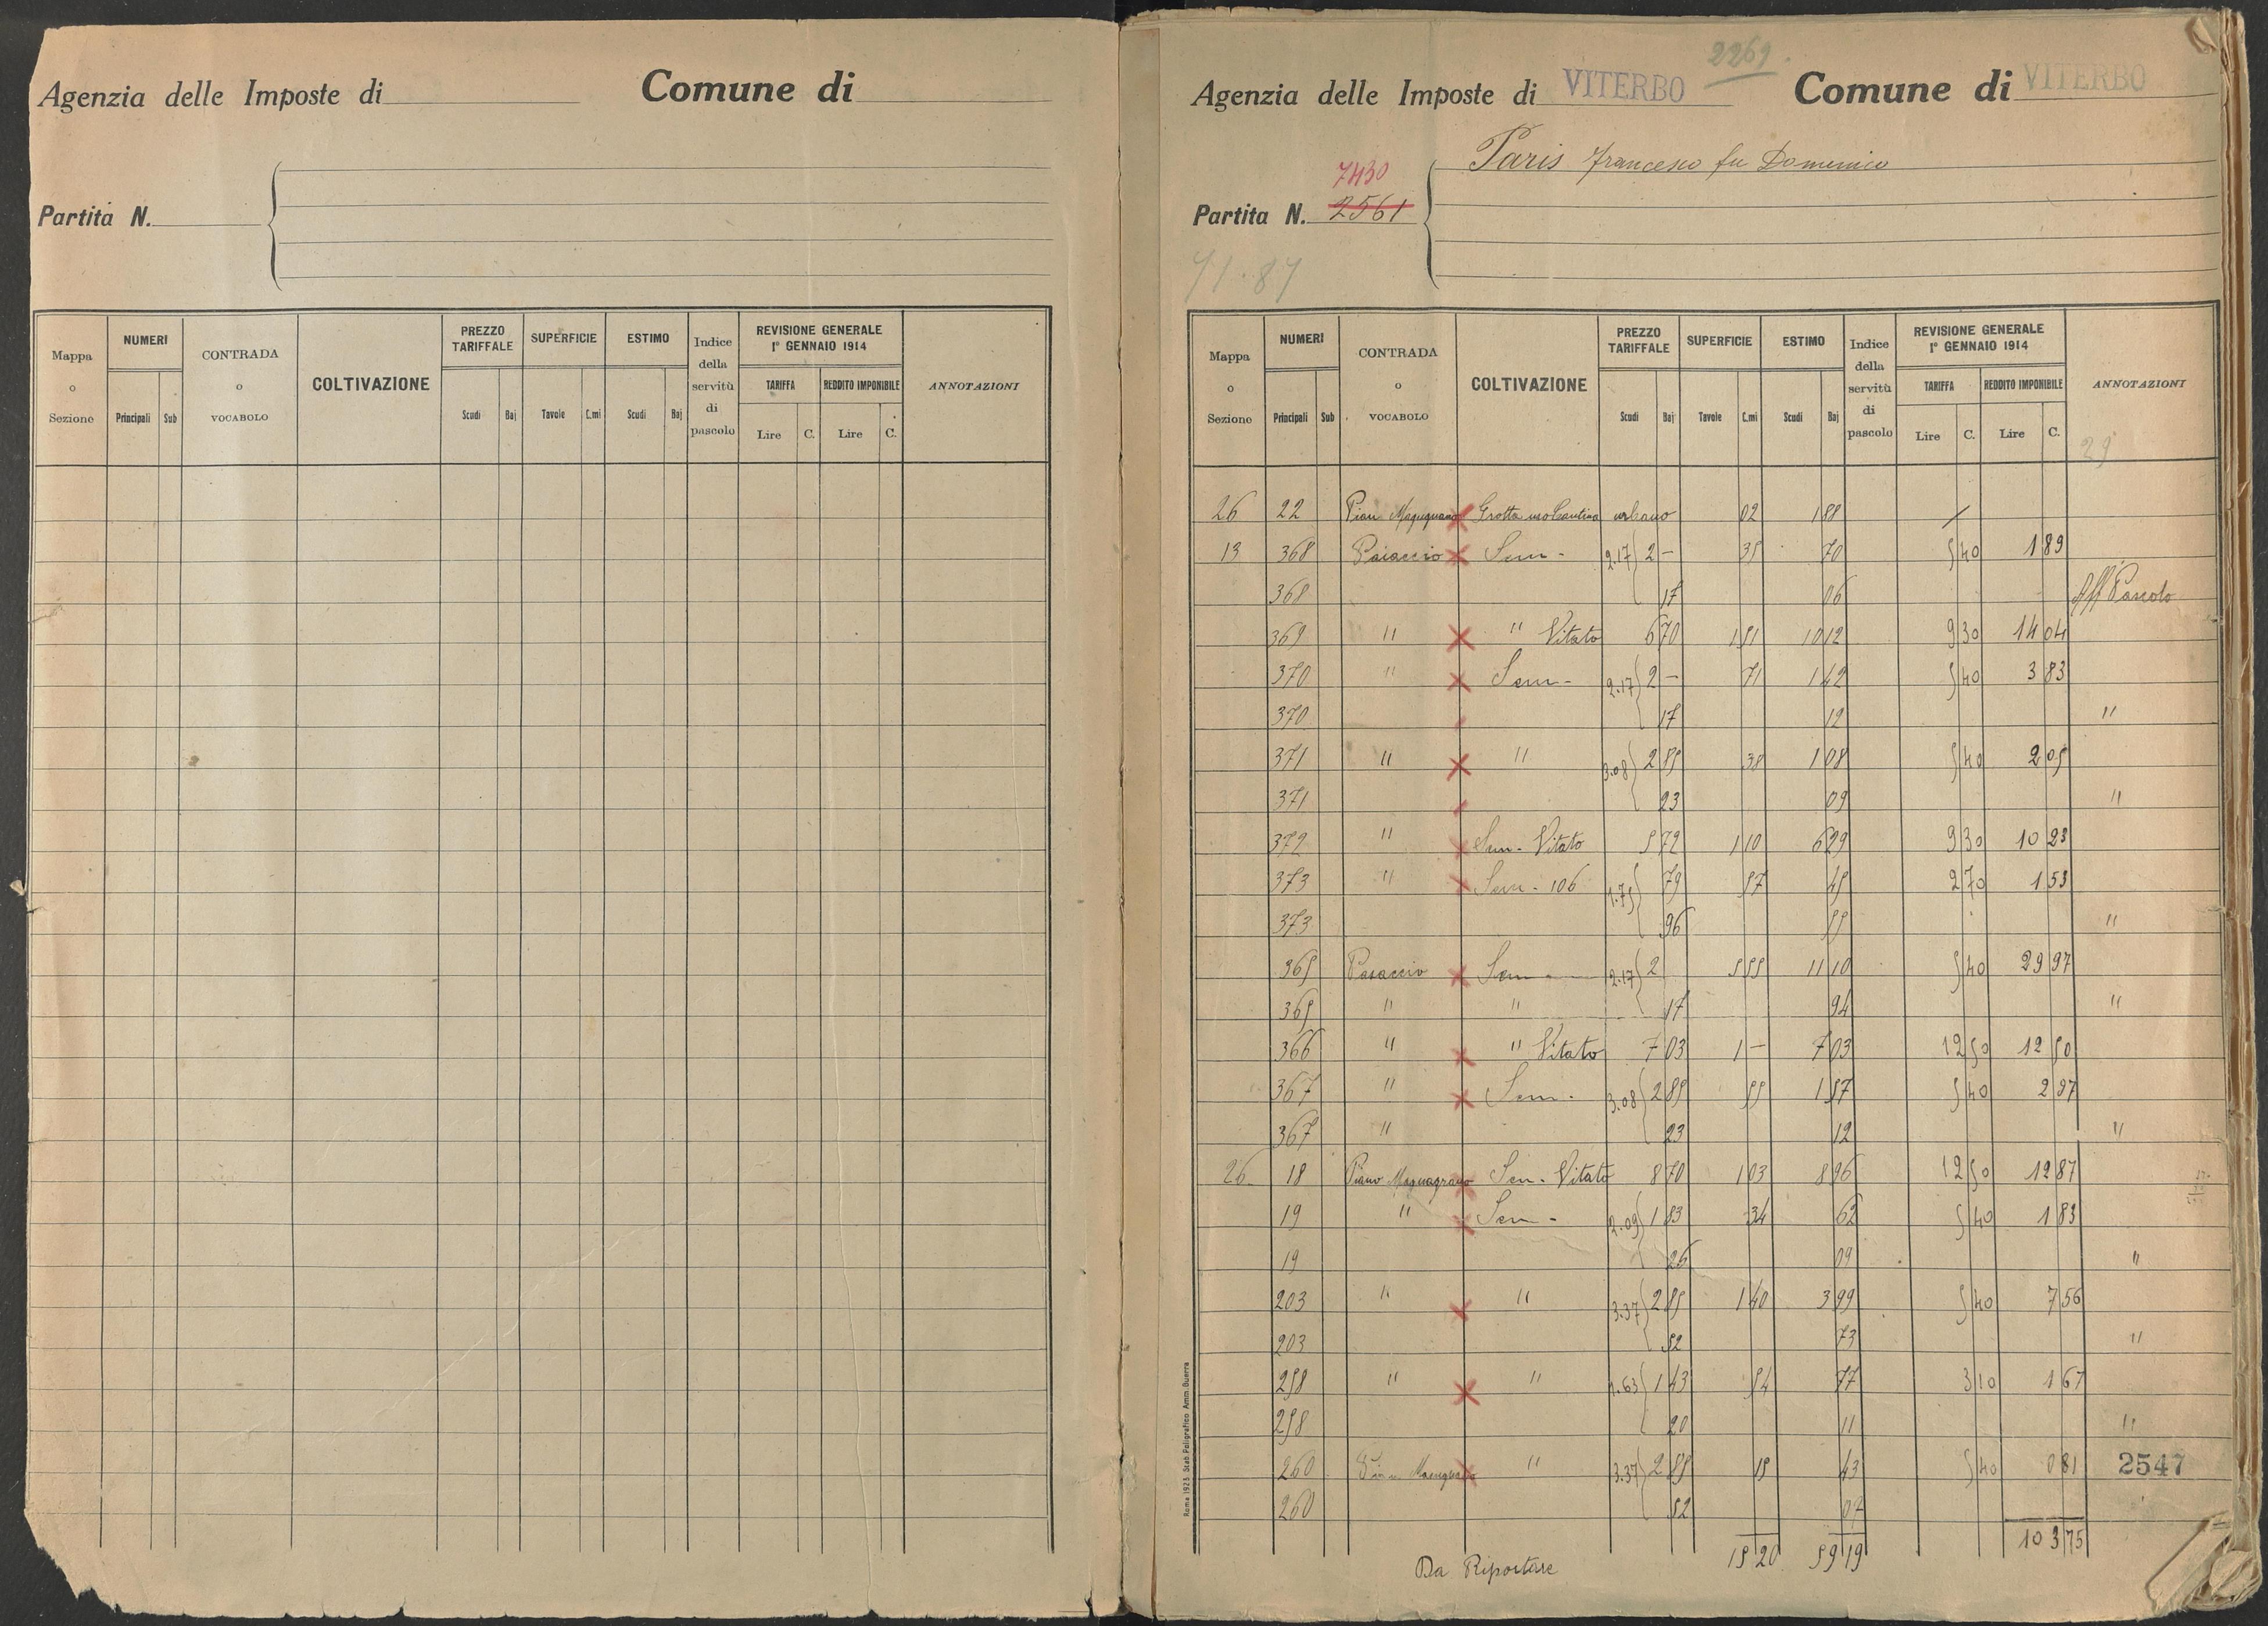 Agenzia delle Imposte di Comune di
Partita N.
Mappa o Sezione NUMERI Principali Sub CONTRADA o VOCABOLO COLTIVAZIONE PREZZO TARIFFALE Scudi Baj SUPERFICIE Tavole C.mi ESTIMO Scudi Baj Indice della servitù di pascolo REVISIONE GENERALE 1° GENNAIO 1914 TARIFFA Lire C. REDDITO IMPONIBILE Lire C. ANNOTAZIONI
2269.
Agenzia delle Imposte di VITERBO Comune di VITERBO
Paris Francesco fu Domenico
7430
Partita N. 2561
71.87
Mappa o Sezione NUMERI Principali Sub CONTRADA o VOCABOLO COLTIVAZIONE PREZZO TARIFFALE Scudi Baj SUPERFICIE Tavole C.mi ESTIMO Scudi Baj Indice della servitù di pascolo REVISIONE GENERALE 1° GENNAIO 1914 TARIFFA Lire C. REDDITO IMPONIBILE Lire C. ANNOTAZIONI
29
26 22 Pian Magugnano Grotta uso Cantina urbano 02 1 88 /
13 368 Sem - 2.17 2 - 35 70 5 40 1 89
368 17 06 Aff Pascolo
369 " " Vitato 6 70 1 51 10 12 9 30 14 04
370 " Sem - 2.17 2 - 71 1 42 5 40 3 83
370 17 12 "
371 " " 3.08 2 85 38 1 08 5 40 2 05
371 23 09 "
372 " Sem. Vitato 5 72 1 10 6 29 9 30 10 23
373 " Sem - 106 1.75 79 57 45 2 70 1 53
373 96 55 "
365 Sem 2.17 2 5 55 11 10 5 40 29 97
365 " " 17 94 "
366 " " Vitato 7 03 1 - 7 03 12 50 12 50
367 " Sem. 3.08 2 85 55 1 57 5 40 2 97
367 " 23 12 "
26 18 Piano Magugnano Sem. Vitato 8 70 1 03 8 96 12 50 12 87
19 " Sem - 2.09 1 83 34 62 5 40 1 83
19 26 09 "
203 " " 3.37 2 85 1 40 3 99 5 40 7 56
203 52 73 "
258 " " 1.63 1 43 54 77 3 10 1 67
258 20 11 "
260 Piano Magugnano " 3.37 2 85 15 43 5 40 0 81 2547
260 52 07
Da Riportare 15 20 59 19 103 75
Roma 1925. Stab. Poligrafico Amm. Guerra